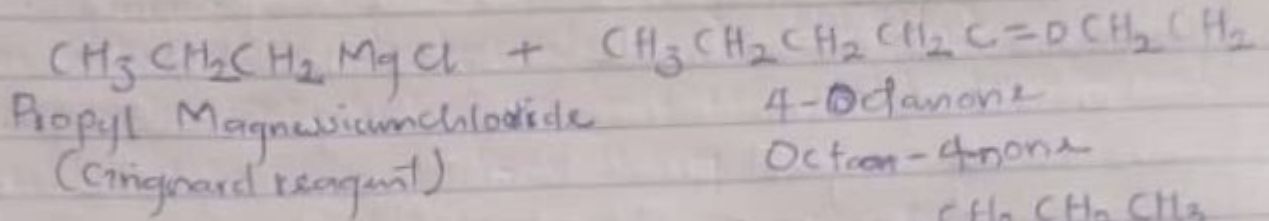 CH3 CH2CH2 Mg Cl + CH3 CH2 CH2 CH2 C=O CH2 CH2
Propyl Magnesiumchloride 4-Octanone
(Gringnard reagent) Octan-4-none
CH2 CH2 CH3